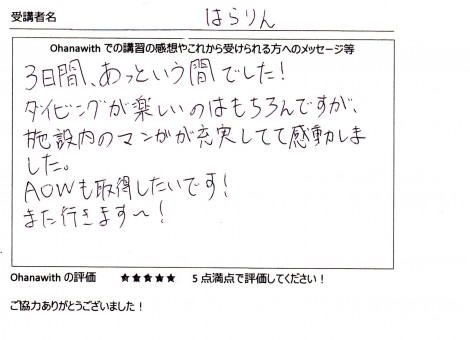 受講者名 はらりん
Ohanawith での講習の感想やこれから受けられる方へのメッセージ等
3日間、あっという間でした!
ダイビングが楽しいのはもちろんですが、
施設内のマンガが充実してて感動しま
した。
AOWも取得したいです!
また行きます〜!
Ohanawith の評価 ★★★★★ 5点満点で評価してください!
ご協力ありがとうございました!